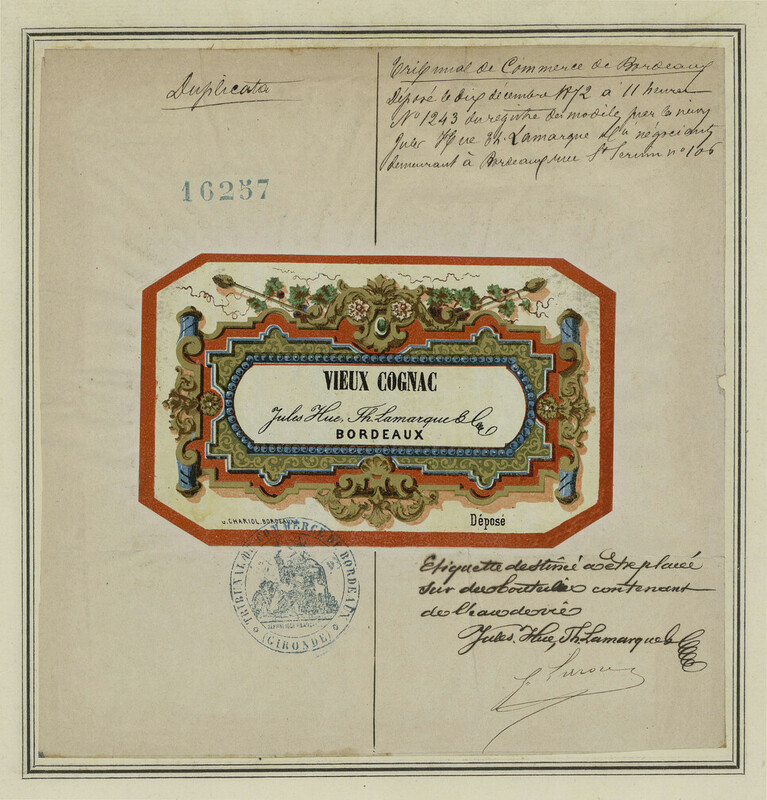 Duplicata
16257
Tribunal de Commerce de Bordeaux
Déposé le dix décembre 1872 à 11 heures
No 1243 du registre des modèles par les sieurs
Jules Hue Th. Lamarque & Cie négociants
demeurant à Bordeaux rue St Seurin no 106
VIEUX COGNAC
Jules Hue, Th. Lamarque & Cie
BORDEAUX
CHARIOL, BORDEAUX
Déposé
TRIBUNAL DE COMMERCE DE BORDEAUX
(GIRONDE)
Etiquette destiné a etre placé
sur des bouteilles contenant
de l'eau de vie
Jules Hue, Th. Lamarque &